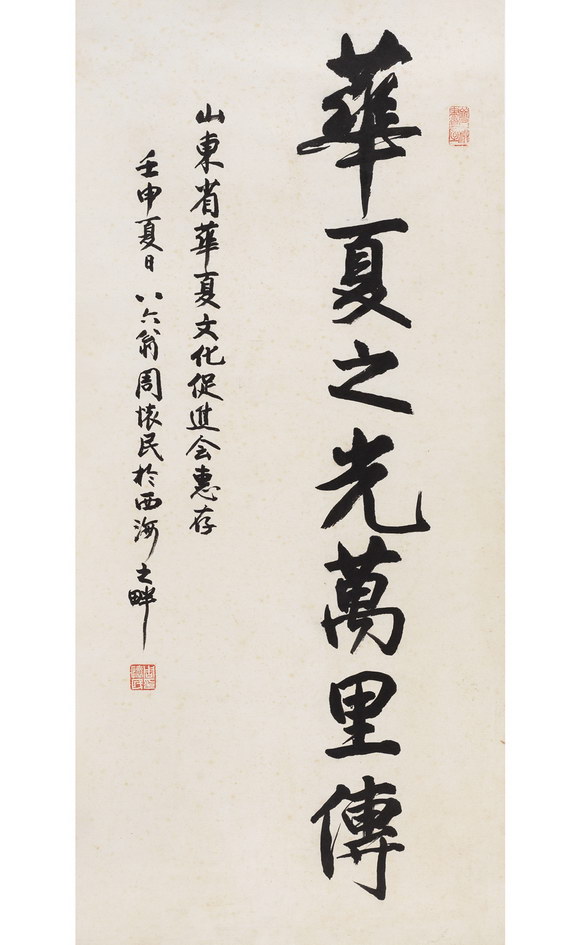 華夏之光萬里傳
山東省華夏文化促進会惠存
壬申夏日八六翁周懐民於西海之畔